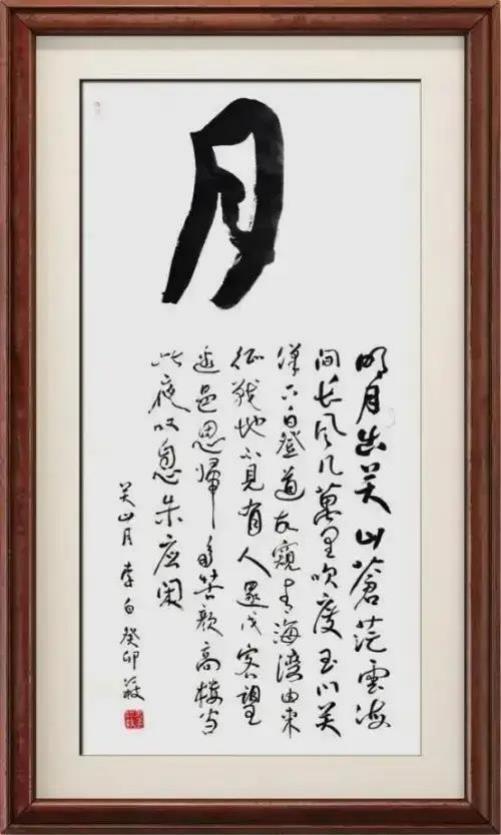 月
明月出关山蒼茫雲海
间长风几萬里吹度玉门关
漢下白登道胡窥青海湾由来
征戰地不見有人還戍客望
邊邑思歸多苦颜高楼当
此夜叹息未应闲
关山月 李白 癸卯